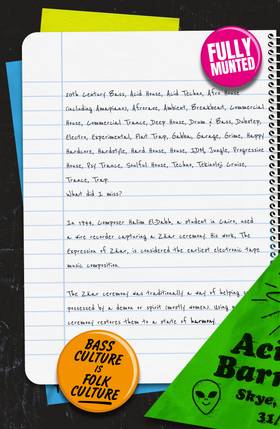 FULLY
MUNTED
20th Century Bass, Acid House, Acid Techno, Afro House
(including Amapiano), Afrorave, Ambient, Breakbeat, Commercial
House, Commercial Trance, Deep House, Drum & Bass, Dubstep,
Electro, Experimental, Flat Trap, Gabba, Garage, Grime, Happy
Hardcore, Hardstyle, Hard House, House, IDM, Jungle, Progressive
House, Psy Trance, Soulful House, Techno, Tekinoloji Cruise,
Trance, Trap.
What did I miss?
In 1944, Composer Halim El-Dabh, a student in Cairo, used
a wire recorder capturing a Zaar ceremony. His work, The
Expression of Zaar, is considered the earliest electronic tape
music composition.
The Zaar ceremony was traditionally a way of helping
possessed by a demon or spirit (mostly women). Using
ceremony restores them to a state of harmony
BASS
CULTURE
IS
FOLK
CULTURE
Skye,
31/